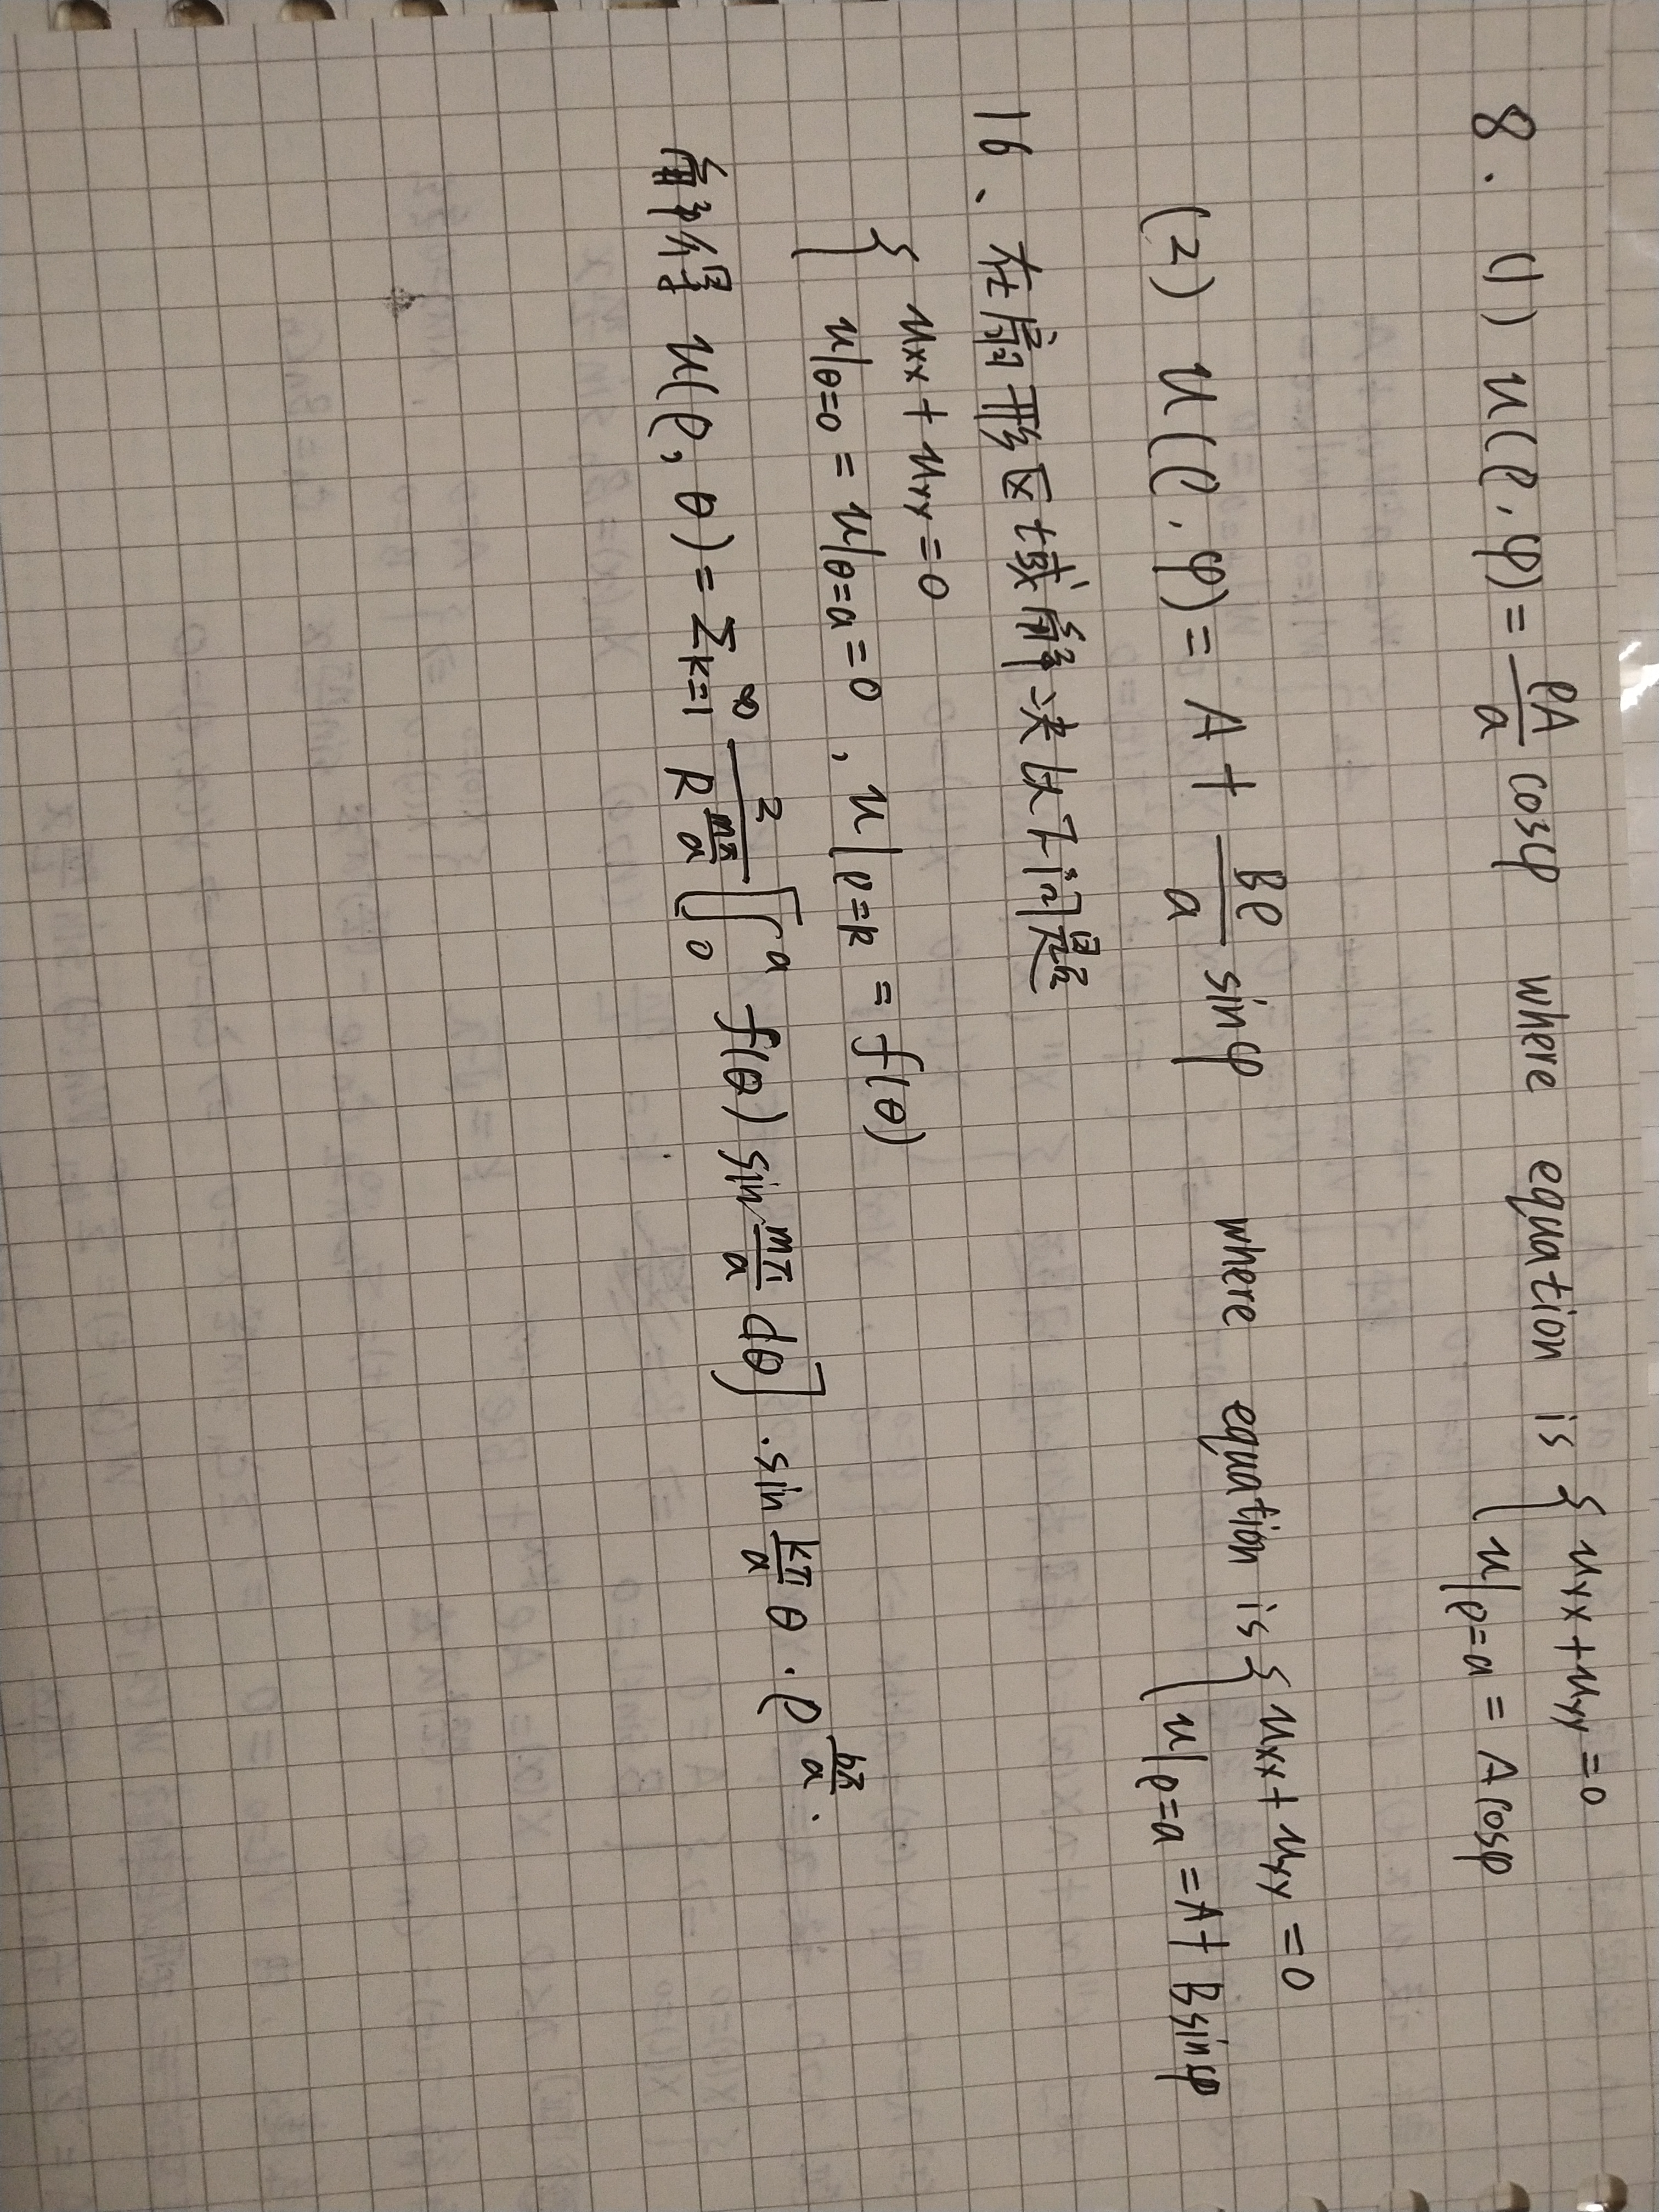 8. (1) u(ρ,φ) = ρA/a cosφ where equation is { uxx + uyy = 0
u|ρ=a = Acosφ
(2) u(ρ,φ) = A + Bρ/a sinφ where equation is { uxx + uyy = 0
u|ρ=a = A + Bsinφ
16、在扇形区域解决以下问题
{ uxx + uyy = 0
u|θ=0 = u|θ=α = 0, u|ρ=R = f(θ)
解得 u(ρ,θ) = Σk=1 ∞ 2/R^(mπ/α) [∫0 α f(θ) sin mπ/α dθ] · sin kπ/α θ · ρ^(kπ/α).